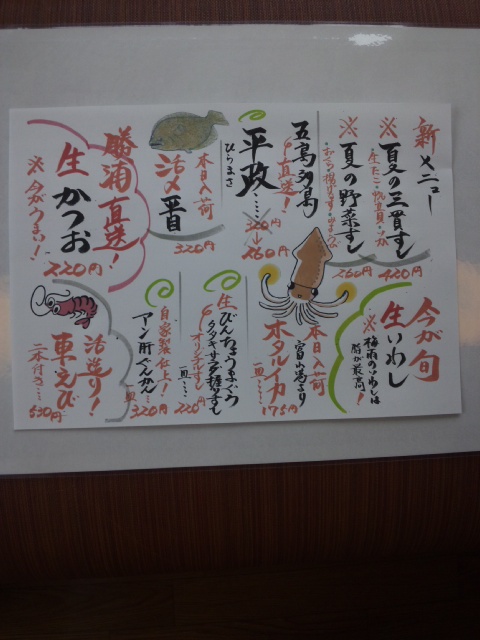 新メニュー
※夏の三貫すし
420円
※夏の野菜すし
260円
五島列島
直送！
平政……
ひらまさ
320円
↓260円
本日入荷
活〆
320円
勝浦直送！
生かつお
※今がうまい！
220円
今が旬
生いわし
※梅雨のいわしは
脂が最高！
本日入荷
富山湾より
ホタルイカ
一皿……175円
生びんちょうまぐろ
タタキサラダ握すし
220円
自家製仕上！
アン肝ぐんかん
一皿 320円
活造り！
車えび
二本付き…
530円